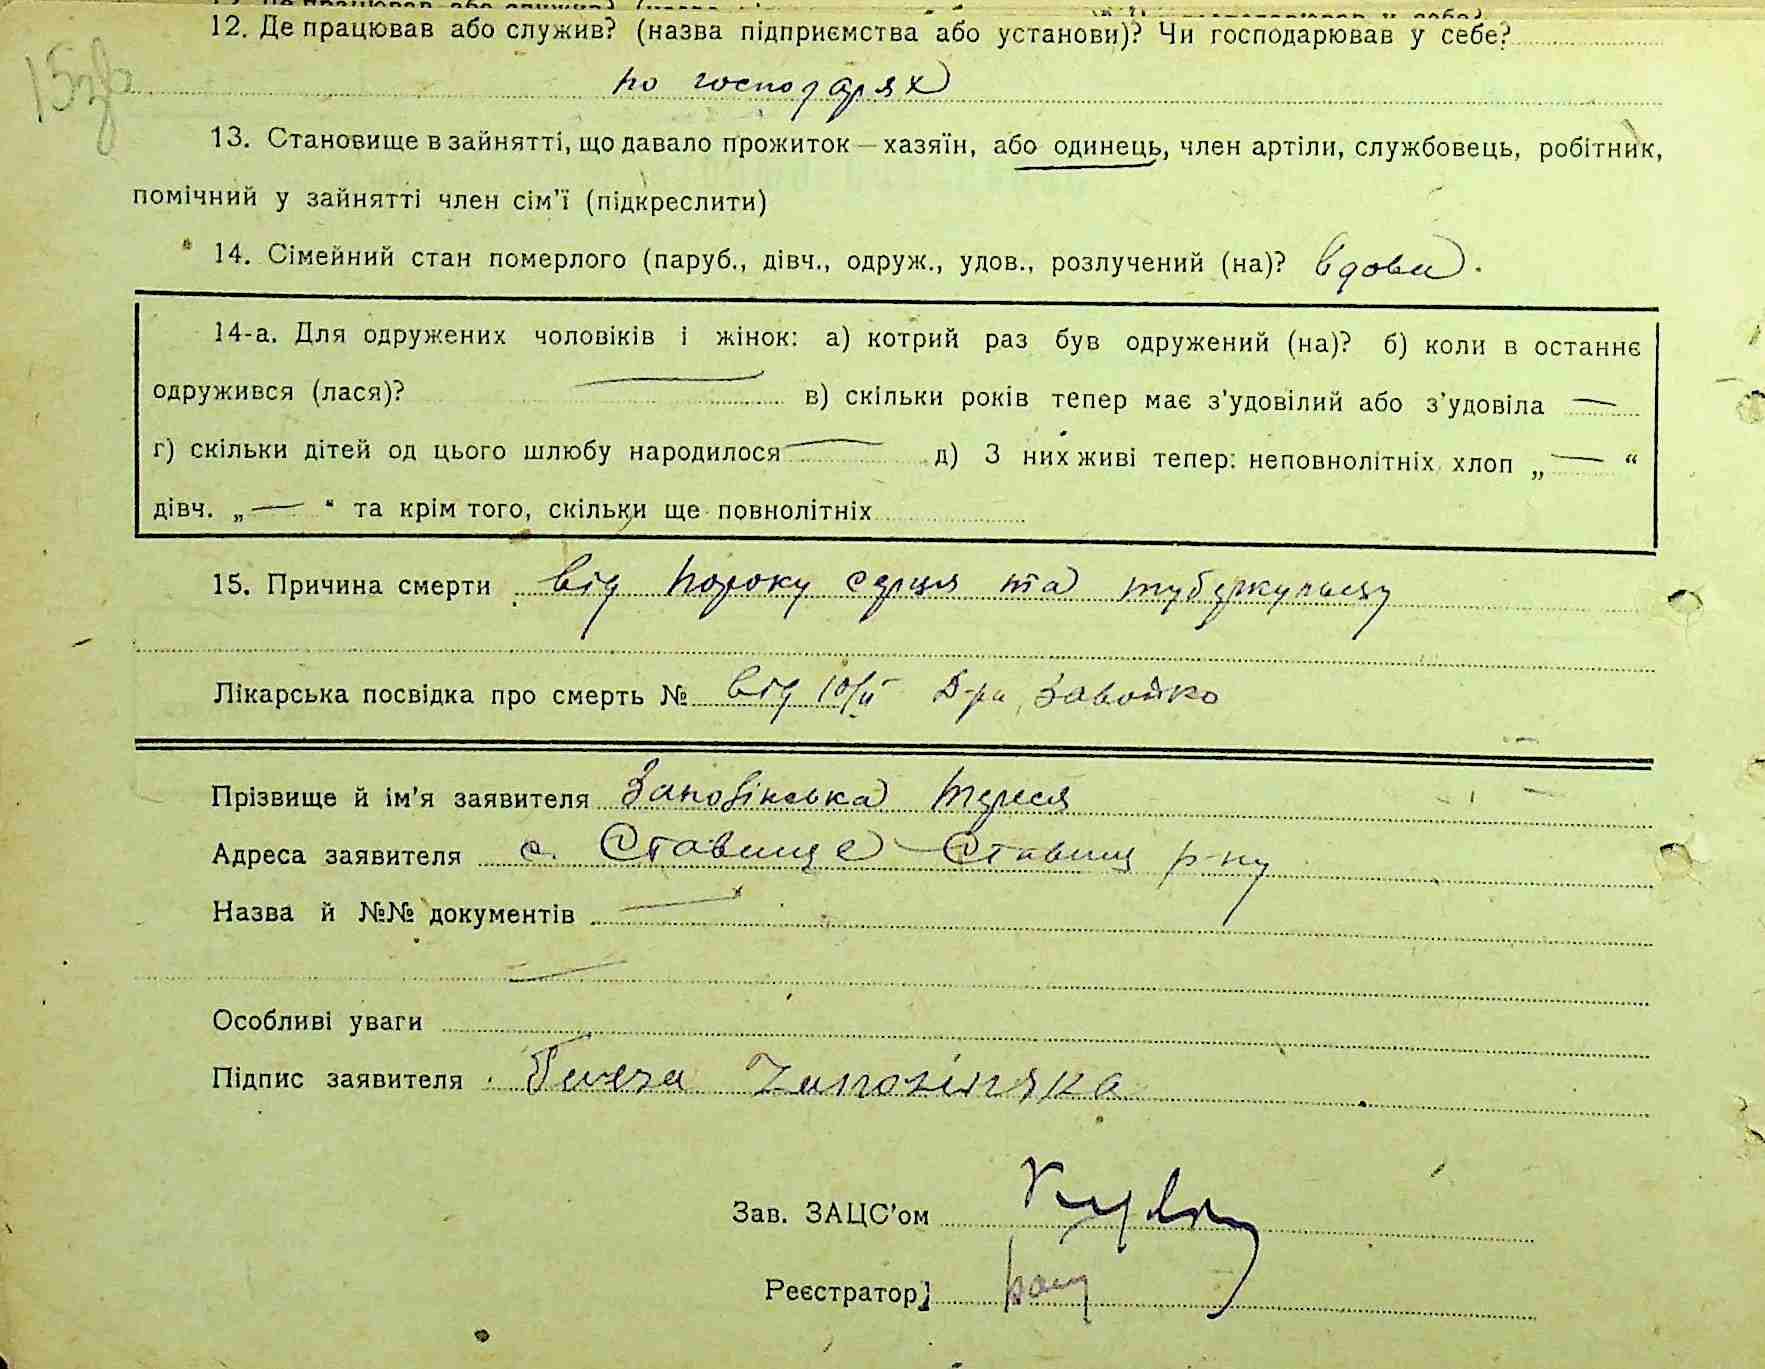 12. Де працював або служив? (назва підприємства або установи)? Чи господарював у себе?
15зв
по господарях
13. Становище в зайнятті, що давало прожиток — хазяїн, або одинець, член артіли, службовець, робітник,
помічний у зайнятті член сім'ї (підкреслити)
14. Сімейний стан померлого (паруб., дівч., одруж., удов., розлучений (на)? вдова.
14-а. Для одружених чоловіків і жінок: а) котрий раз був одружений (на)? б) коли в останнє
одружився (лася)? — в) скільки років тепер має з'удовілий або з'удовіла —
г) скільки дітей од цього шлюбу народилося — д) З них живі тепер: неповнолітніх хлоп „ — “
дівч. „ — “ та крім того, скільки ще повнолітніх
15. Причина смерти від пороку серця та туберкульозу
Лікарська посвідка про смерть № від 10/II Д-ра Завойко
Прізвище й ім'я заявителя Заповінська Тереся
Адреса заявителя с. Ставище Ставищ р-ну
Назва й №№ документів —
—
Особливі уваги
Підпис заявителя
Зав. ЗАЦС'ом
Реєстратор